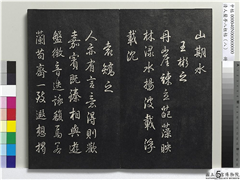 山期水
王彬之
丹崖竦立葩藻映
林淥水揚波載浮
載沉
袁嶠之
人亦有言意得則歡
嘉賓既臻相與遊
盤微音迭詠馥焉若
蘭苟齊一致遐想揭